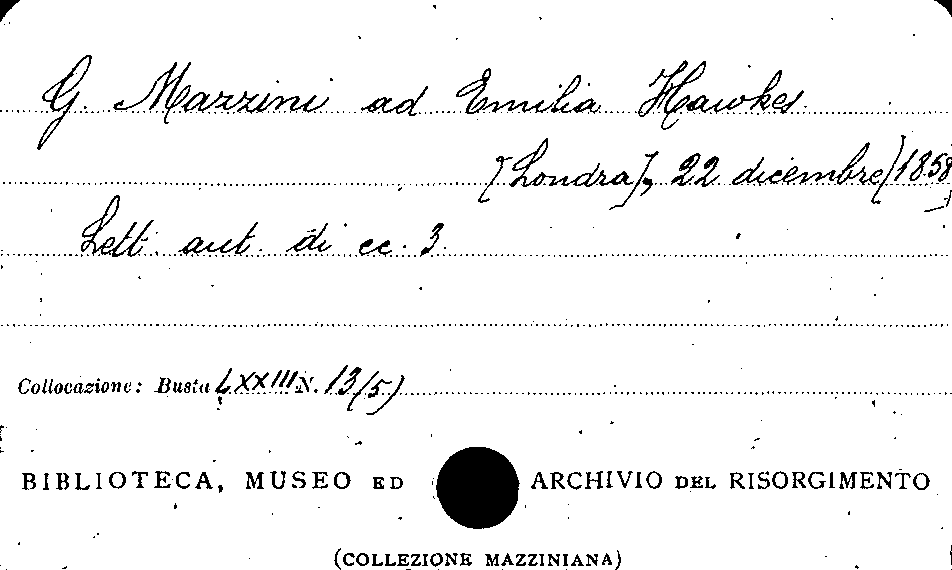 G. Mazzini ad Emilia Hawkes.
[Londra], 22 dicembre [1858]
Lett. aut. di cc. 3.
Collocazione: Busta LXXIII N. 13(5)
BIBLIOTECA, MUSEO ED ARCHIVIO DEL RISORGIMENTO
(COLLEZIONE MAZZINIANA)